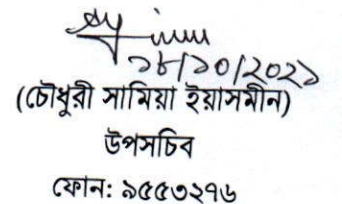 ১৮/১০/২০২১
(চৌধুরী সামিয়া ইয়াসমীন)
উপসচিব
ফোন: ৯৫৫৩২৭৬